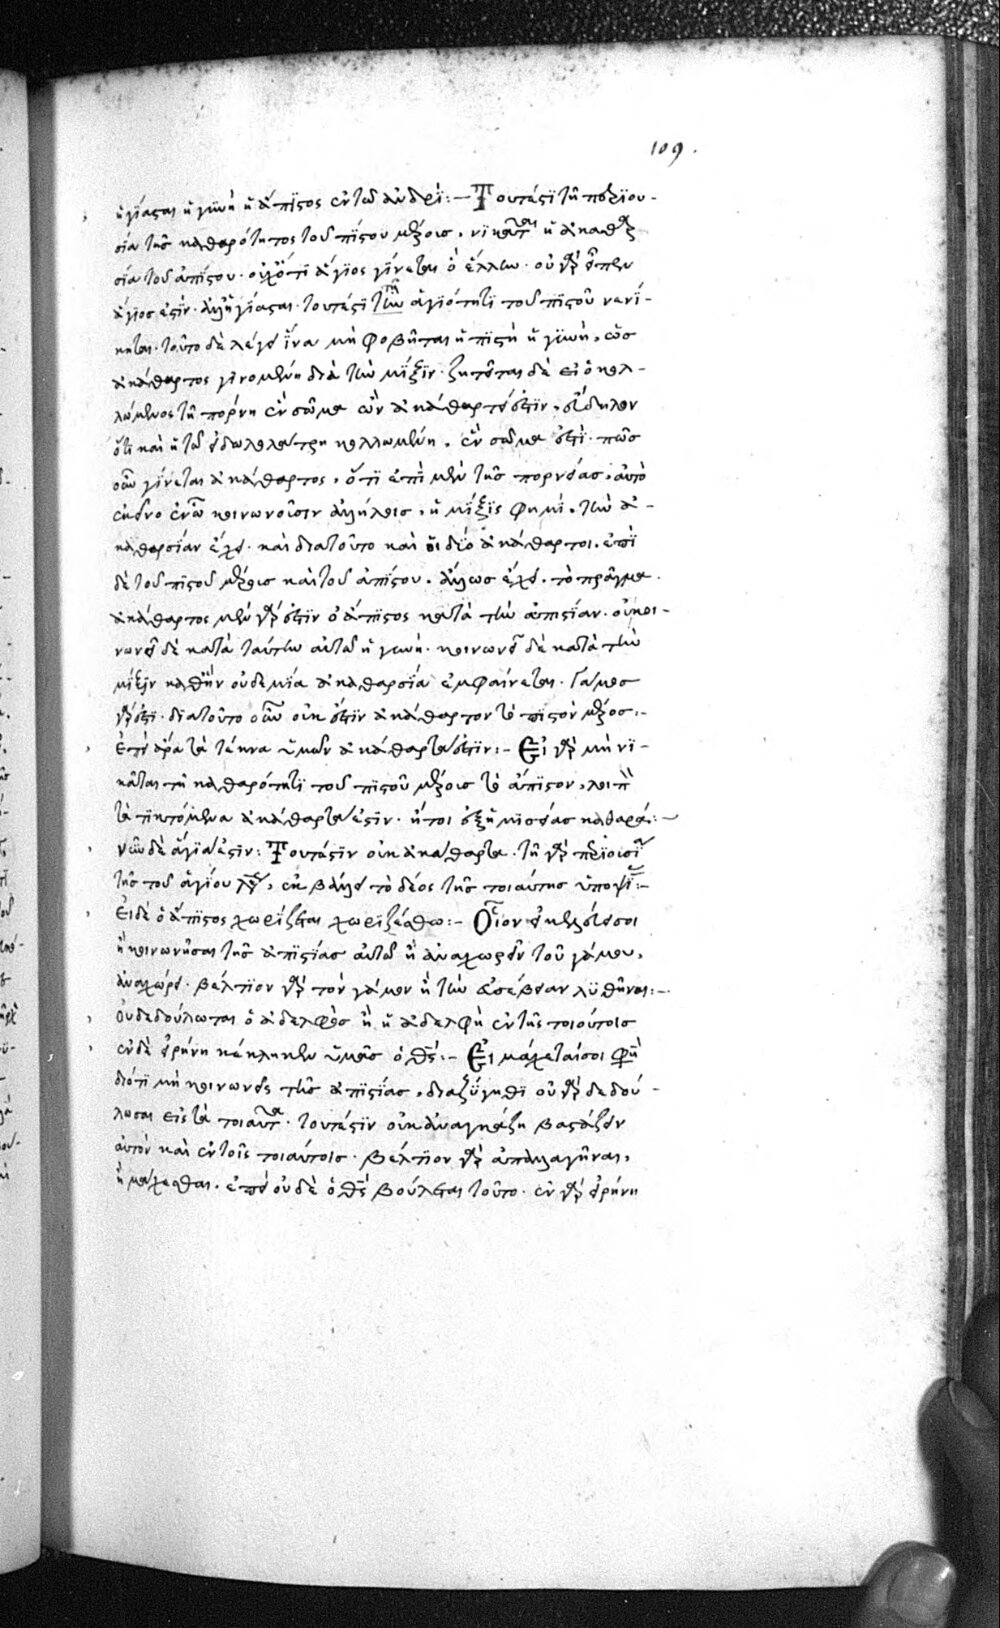 109.
ἡγίασται ἡ γυνὴ ἡ ἄπιστος ἐν τῶ ἀνδρί:– Τουτέστι τῆ περιου-
σία τῆς καθαρότητος τοῦ πιστοῦ μέρους, νικᾶται ἡ ἀκαθαρ
σία τοῦ ἀπίστου. οὐχ ὅτι ἅγιος γίνεται ὁ ἕλλην. οὐ γὰρ εἶπεν
ἅγιος ἐστὶν. ἀλλ' ἡγίασται. τουτέστι τῆ ἁγιότητι τοῦ πιστοῦ νενί-
κηται. τοῦτο δὲ λέγει ἵνα μὴ φοβῆται ἡ πιστὴ ἡ γυνὴ, ὡς
ἀκάθαρτος γινομένη διὰ τὴν μίξιν. ζητεῖται δὲ εἰ ὁ κολ-
λώμενος τῆ πόρνη ἓν σῶμα ὢν ἀκάθαρτός ἐστιν, εὔδηλον
ὅτι καὶ ἡ τῶ εἰδωλολάτρη κολλωμένη, ἓν σῶμα ἐστί. πῶς
οὖν γίνεται ἀκάθαρτος, ὅτι ἐπὶ μὲν τῆς πορνείας, αὐτὸ
ἐκεῖνο ἐν ὧ κοινωνοῦσιν ἀλλήλοις, ἡ μίξις φημί, τὴν ἀ-
καθαρσίαν ἔχει. καὶ διατοῦτο καὶ οἱ δύο ἀκάθαρτοι. ἐπὶ
δὲ τοῦ πιστοῦ μέρους καὶ τοῦ ἀπίστου. ἄλλως ἔχει. τὸ πρᾶγμα.
ἀκάθαρτος μὲν γάρ ἐστιν ὁ ἄπιστος κατὰ τὴν ἀπιστίαν. οὐ κοι-
νωνεῖ δὲ κατὰ ταύτην αὐτῶ ἡ γυνή. κοινωνεῖ δὲ κατὰ τὴν
μίξιν καθ' ἣν οὐδεμία ἀκαθαρσία ἐμφαίνεται. Γάμος
γάρ ἐστι. διατοῦτο οὖν οὐκ ἔστιν ἀκάθαρτον τὸ πιστὸν μέρος:–
Ἐπεὶ ἄρα τὰ τέκνα ὑμῶν ἀκάθαρτά ἐστιν:– Εἰ γὰρ μὴ νι-
κᾶται τῆ καθαρότητι τοῦ πιστοῦ μέρους τὸ ἄπιστον, λοιπὸν
τὰ τικτόμενα ἀκάθαρτά ἐστιν. ἤτοι ἐξ ἡμισείας καθαρά:–
νῦν δὲ ἅγιά ἐστιν: Τουτέστιν οὐκ ἀκάθαρτα. τῆ γὰρ περιουσία
τῆς τοῦ ἁγίου λέξεως, ἐκβάλλει τὸ δέος τῆς τοιαύτης ὑποψίας:–
Εἰ δὲ ὁ ἄπιστος χωρίζεται χωριζέσθω:– Οἷον εἰ κελεύει σοι
ἢ κοινωνῆσαι τῆς ἀπιστίας αὐτῶ ἢ ἀναχωρεῖν τοῦ γάμου,
ἀναχώρει. βέλτιον γὰρ τὸν γάμον ἢ τὴν εὐσέβειαν λυθῆναι:–
Οὐ δεδούλωται ὁ ἀδελφὸς ἢ ἡ ἀδελφὴ ἐν τοῖς τοιούτοις
ἐν δὲ εἰρήνη κέκληκεν ἡμᾶς ὁ θς:– Εἰ μάχεταί σοι φησὶ
διότι μὴ κοινωνεῖς τῆς ἀπιστίας, διαζύγηθι οὐ γὰρ δεδού-
λωσαι εἰς τὰ τοιαῦτα. τουτέστιν οὐκ ἀναγκάζη βαστάζειν
αὐτὸν καὶ ἐν τοῖς τοιούτοις. βέλτιον γὰρ ἀπαλλαγῆναι,
ἢ μάχεσθαι. ἐπεὶ οὐδὲ ὁ θς βούλεται τοῦτο. ἐν γὰρ εἰρήνη